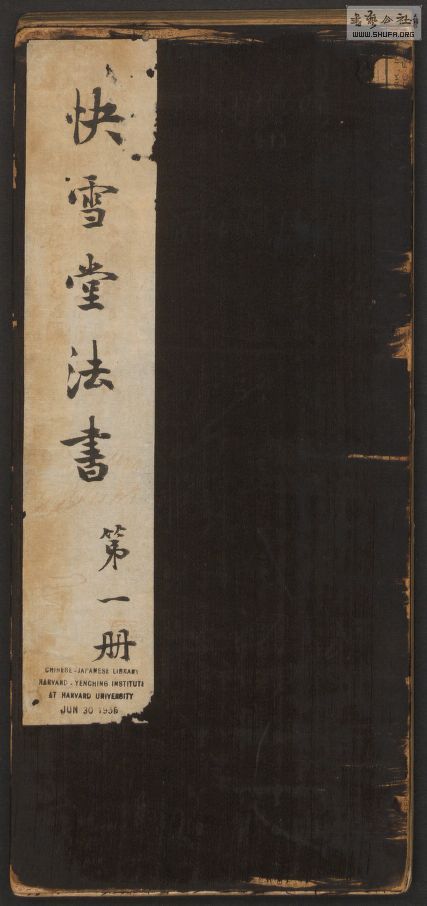 快雪堂法書
第一册
CHINESE-JAPANESE LIBRARY
HARVARD-YENCHING INSTITUTE
AT HARVARD UNIVERSITY
JUN 30 1956
WWW.SHUFA.ORG